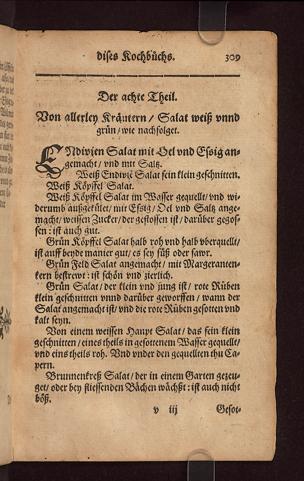 dises Kochbuchs. 309
Der achte Theil.
Von allerley Kräutern / Salat weiß vnnd
grün / wie nachfolget.
ENdivien Salat mit Oel vnd Essig an-
gemacht / vnd mit Saltz.
Weiß Endivie Salat fein klein geschnitten.
Weiß Köpffel Salat.
Weiß Köpffel Salat im Wasser gequellt / vnd wi-
derumb außgekület / mit Essig / Oel vnd Saltz ange-
macht / weissen Zucker / der gestossen ist / darüber gezos-
sen : ist auch gut.
Grün Köpffel Salat halb roh vnd halb vberquellt /
ist auff beyde manier gut / es sey süß oder sawr.
Grün Feld Salat angemacht / mit Margeranten-
kern bestrewt : ist schön vnd zierlich.
Grün Salat / der klein vnd jung ist / rote Rüben
klein geschnitten vnnd darüber geworffen / wann der
Salat angemacht ist / vnd die rote Rüben gesotten vnd
kalt seyn.
Von einem weissen Haupt Salat / das fein klein
geschnitten / eines theils in gesottenem Wasser gequellt /
vnd eins theils roh. Vnd vnder den gequellten thu Ca-
pern.
Brunnenkreß Salat / der in einem Garten gezeu-
get / oder bey fliessenden Bächen wächßt : ist auch nicht
böß.
v iij Gesot-